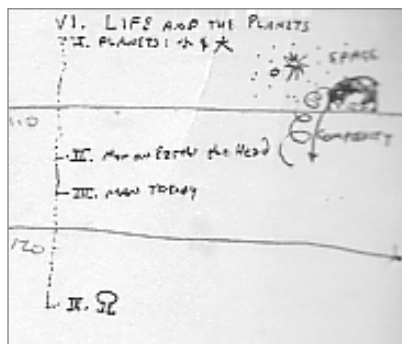 VI. LIFE AND THE PLANETS
I. PLANETS: 小 & 大
SPACE
110
COMPLEXITY
II. Man on Earth the Head
III. MAN TODAY
120
IV. Ω